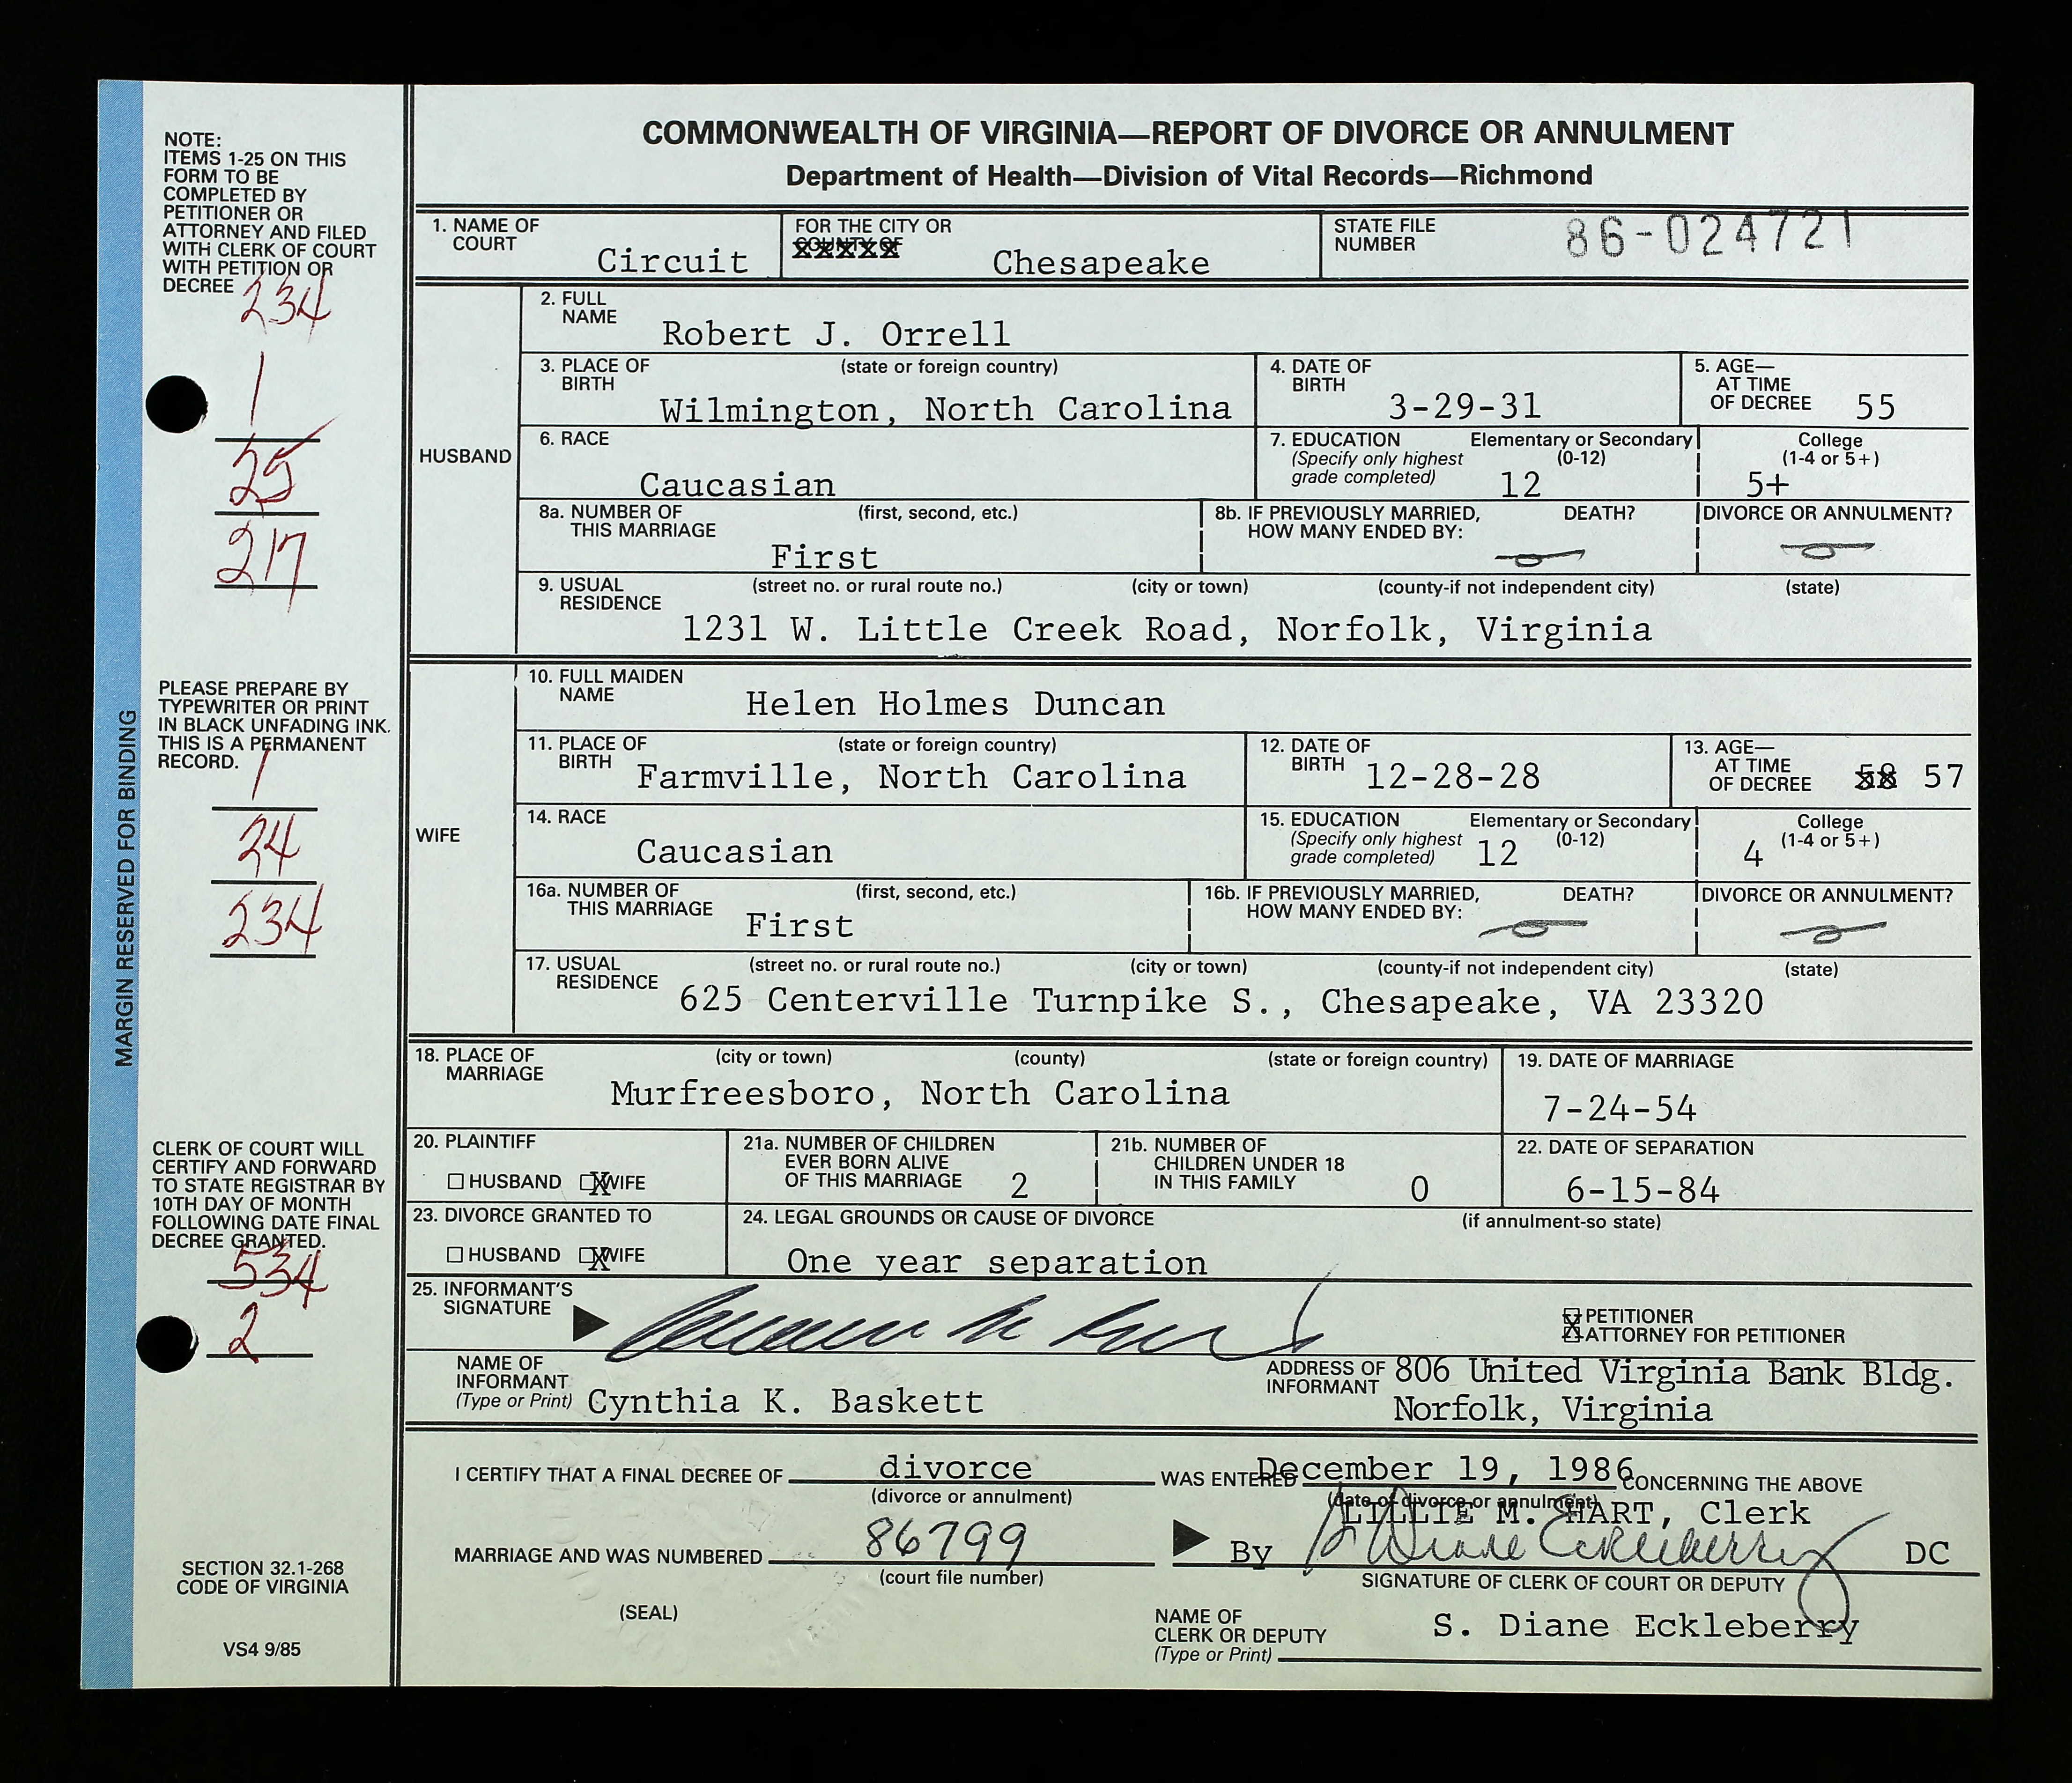 COMMONWEALTH OF VIRGINIA—REPORT OF DIVORCE OR ANNULMENT
Department of Health—Division of Vital Records—Richmond
NOTE:
ITEMS 1-25 ON THIS
FORM TO BE
COMPLETED BY
PETITIONER OR
ATTORNEY AND FILED
WITH CLERK OF COURT
WITH PETITION OR
DECREE
234
1
25
217
PLEASE PREPARE BY
TYPEWRITER OR PRINT
IN BLACK UNFADING INK.
THIS IS A PERMANENT
RECORD.
1
24
234
CLERK OF COURT WILL
CERTIFY AND FORWARD
TO STATE REGISTRAR BY
10TH DAY OF MONTH
FOLLOWING DATE FINAL
DECREE GRANTED.
534
2
SECTION 32.1-268
CODE OF VIRGINIA
VS4 9/85
MARGIN RESERVED FOR BINDING
1. NAME OF COURT Circuit
FOR THE CITY OR
COUNTY OF Chesapeake
STATE FILE NUMBER 86-024721
HUSBAND
2. FULL NAME Robert J. Orrell
3. PLACE OF BIRTH (state or foreign country) Wilmington, North Carolina
4. DATE OF BIRTH 3-29-31
5. AGE— AT TIME OF DECREE 55
6. RACE Caucasian
7. EDUCATION (Specify only highest grade completed) Elementary or Secondary (0-12) 12 College (1-4 or 5+) 5+
8a. NUMBER OF THIS MARRIAGE (first, second, etc.) First
8b. IF PREVIOUSLY MARRIED, HOW MANY ENDED BY: DEATH? 0 DIVORCE OR ANNULMENT? 0
9. USUAL RESIDENCE (street no. or rural route no.) (city or town) (county-if not independent city) (state)
1231 W. Little Creek Road, Norfolk, Virginia
WIFE
10. FULL MAIDEN NAME Helen Holmes Duncan
11. PLACE OF BIRTH (state or foreign country) Farmville, North Carolina
12. DATE OF BIRTH 12-28-28
13. AGE— AT TIME OF DECREE 58 57
14. RACE Caucasian
15. EDUCATION (Specify only highest grade completed) Elementary or Secondary (0-12) 12 College (1-4 or 5+) 4
16a. NUMBER OF THIS MARRIAGE (first, second, etc.) First
16b. IF PREVIOUSLY MARRIED, HOW MANY ENDED BY: DEATH? 0 DIVORCE OR ANNULMENT? 0
17. USUAL RESIDENCE (street no. or rural route no.) (city or town) (county-if not independent city) (state)
625 Centerville Turnpike S., Chesapeake, VA 23320
18. PLACE OF MARRIAGE (city or town) (county) (state or foreign country)
Murfreesboro, North Carolina
19. DATE OF MARRIAGE
7-24-54
20. PLAINTIFF
HUSBAND X WIFE
21a. NUMBER OF CHILDREN EVER BORN ALIVE OF THIS MARRIAGE 2
21b. NUMBER OF CHILDREN UNDER 18 IN THIS FAMILY 0
22. DATE OF SEPARATION
6-15-84
23. DIVORCE GRANTED TO
HUSBAND X WIFE
24. LEGAL GROUNDS OR CAUSE OF DIVORCE (if annulment-so state)
One year separation
25. INFORMANT'S SIGNATURE
PETITIONER
X ATTORNEY FOR PETITIONER
NAME OF INFORMANT (Type or Print) Cynthia K. Baskett
ADDRESS OF INFORMANT 806 United Virginia Bank Bldg.
Norfolk, Virginia
I CERTIFY THAT A FINAL DECREE OF divorce WAS ENTERED December 19, 1986 CONCERNING THE ABOVE
(divorce or annulment) (date of divorce or annulment)
LILLIE M. HART, Clerk
MARRIAGE AND WAS NUMBERED 86799 By S Diane Eckleberry DC
(court file number) SIGNATURE OF CLERK OF COURT OR DEPUTY
(SEAL)
NAME OF CLERK OR DEPUTY (Type or Print) S. Diane Eckleberry